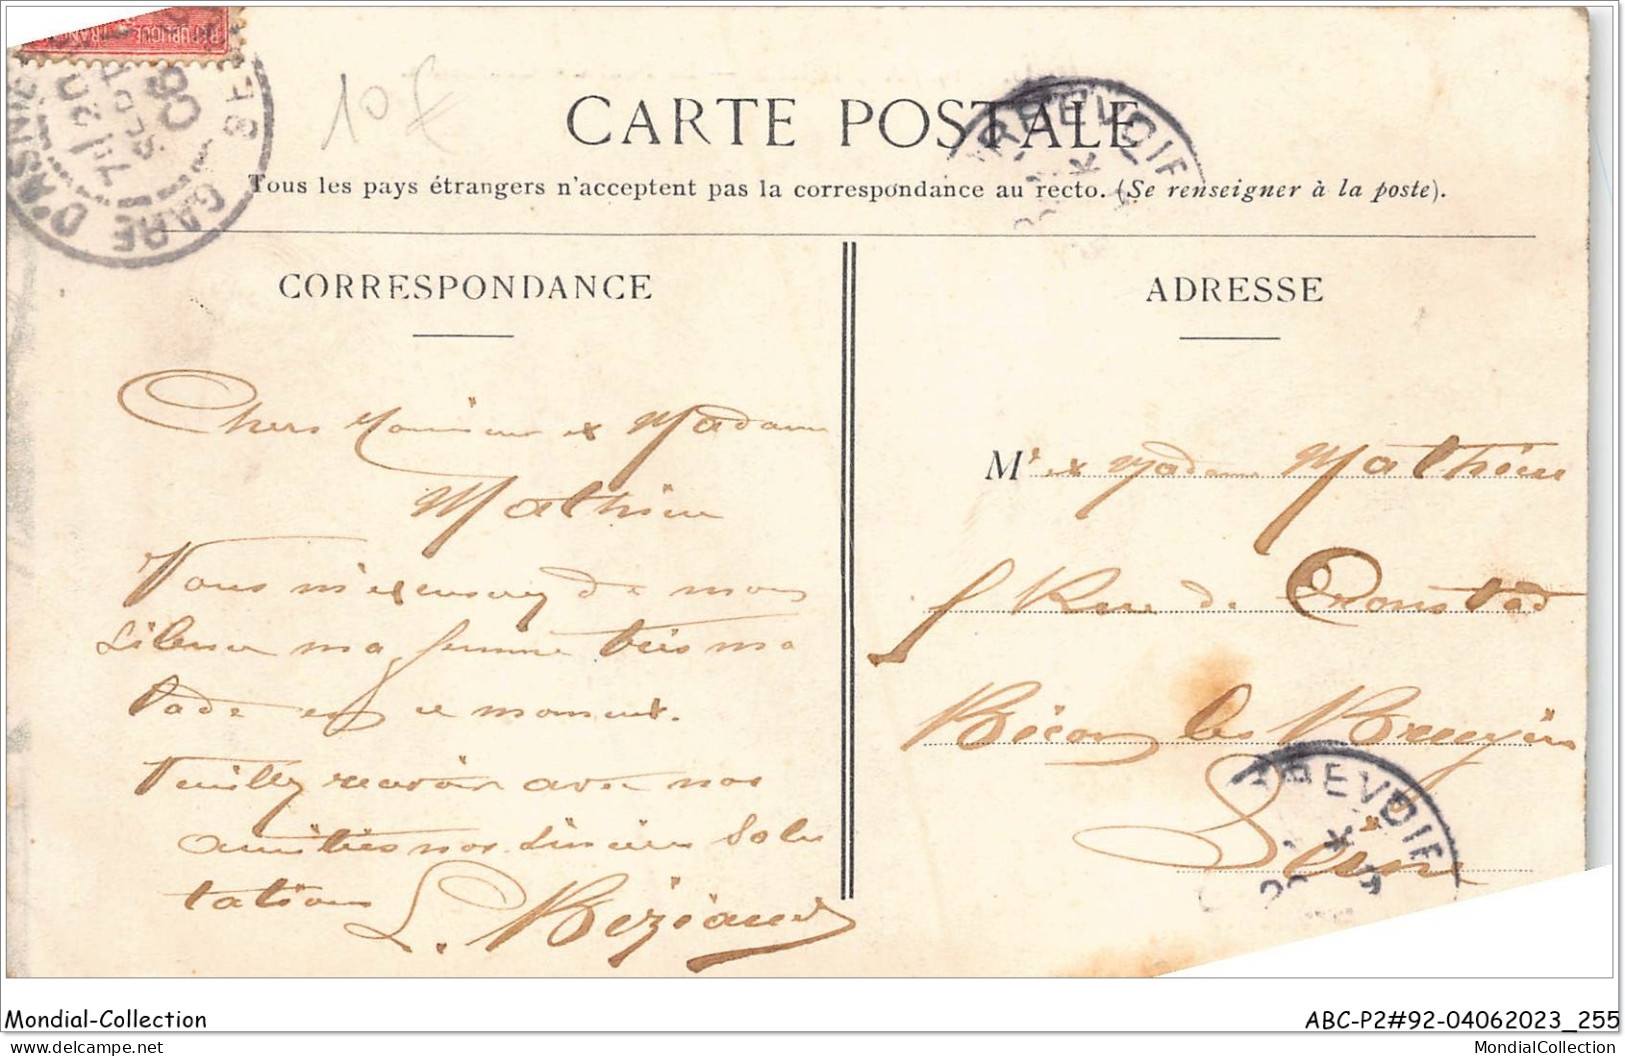 RÉPUBLIQUE FRANÇ
GARE D'ASNIE
SE
7E
20
SEPT
06
10 €
CARTE POSTALE
RREVOIR
Tous les pays étrangers n'acceptent pas la correspondance au recto. (Se renseigner à la poste).
CORRESPONDANCE
ADRESSE
Chers Monsieur et Madame
Mathieu
Vous m'excuserez de mon
silence ma femme très ma
lade en ce moment.
Veuillez recevoir avec nos
amitiés nos sincères Salu
tations
L. Bézéaud
Mr et Madame Mathieu
Rue de Cronstad
Bécon les Bruyères
Seine
REVOIR
Mondial-Collection
ABC-P2#92-04062023_255
www.delcampe.net
MondialCollection